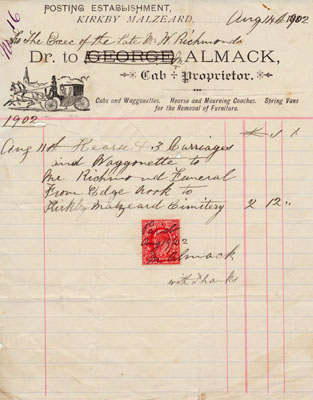 POSTING ESTABLISHMENT,
KIRKBY MALZEARD,
Aug 14th 1902
No 16
To The Exec of the Late Mr W Richmond
Dr. to GEORGE ALMACK,
Cab Proprietor.
Cabs and Waggonettes. Hearse and Mourning Coaches. Spring Vans
for the Removal of Furniture.
1902
£ s d
Aug 11th Hearse & 3 Carriages
and Waggonette to
Mr Richmond Funeral
From Edge Nook to
Kirkby Malzeard Cimitery 2 12 "
Paid
Aug 02
Almack
with Thanks